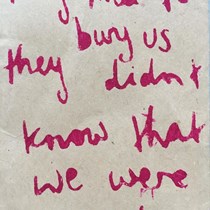 bury us
they didn't
know that
we were